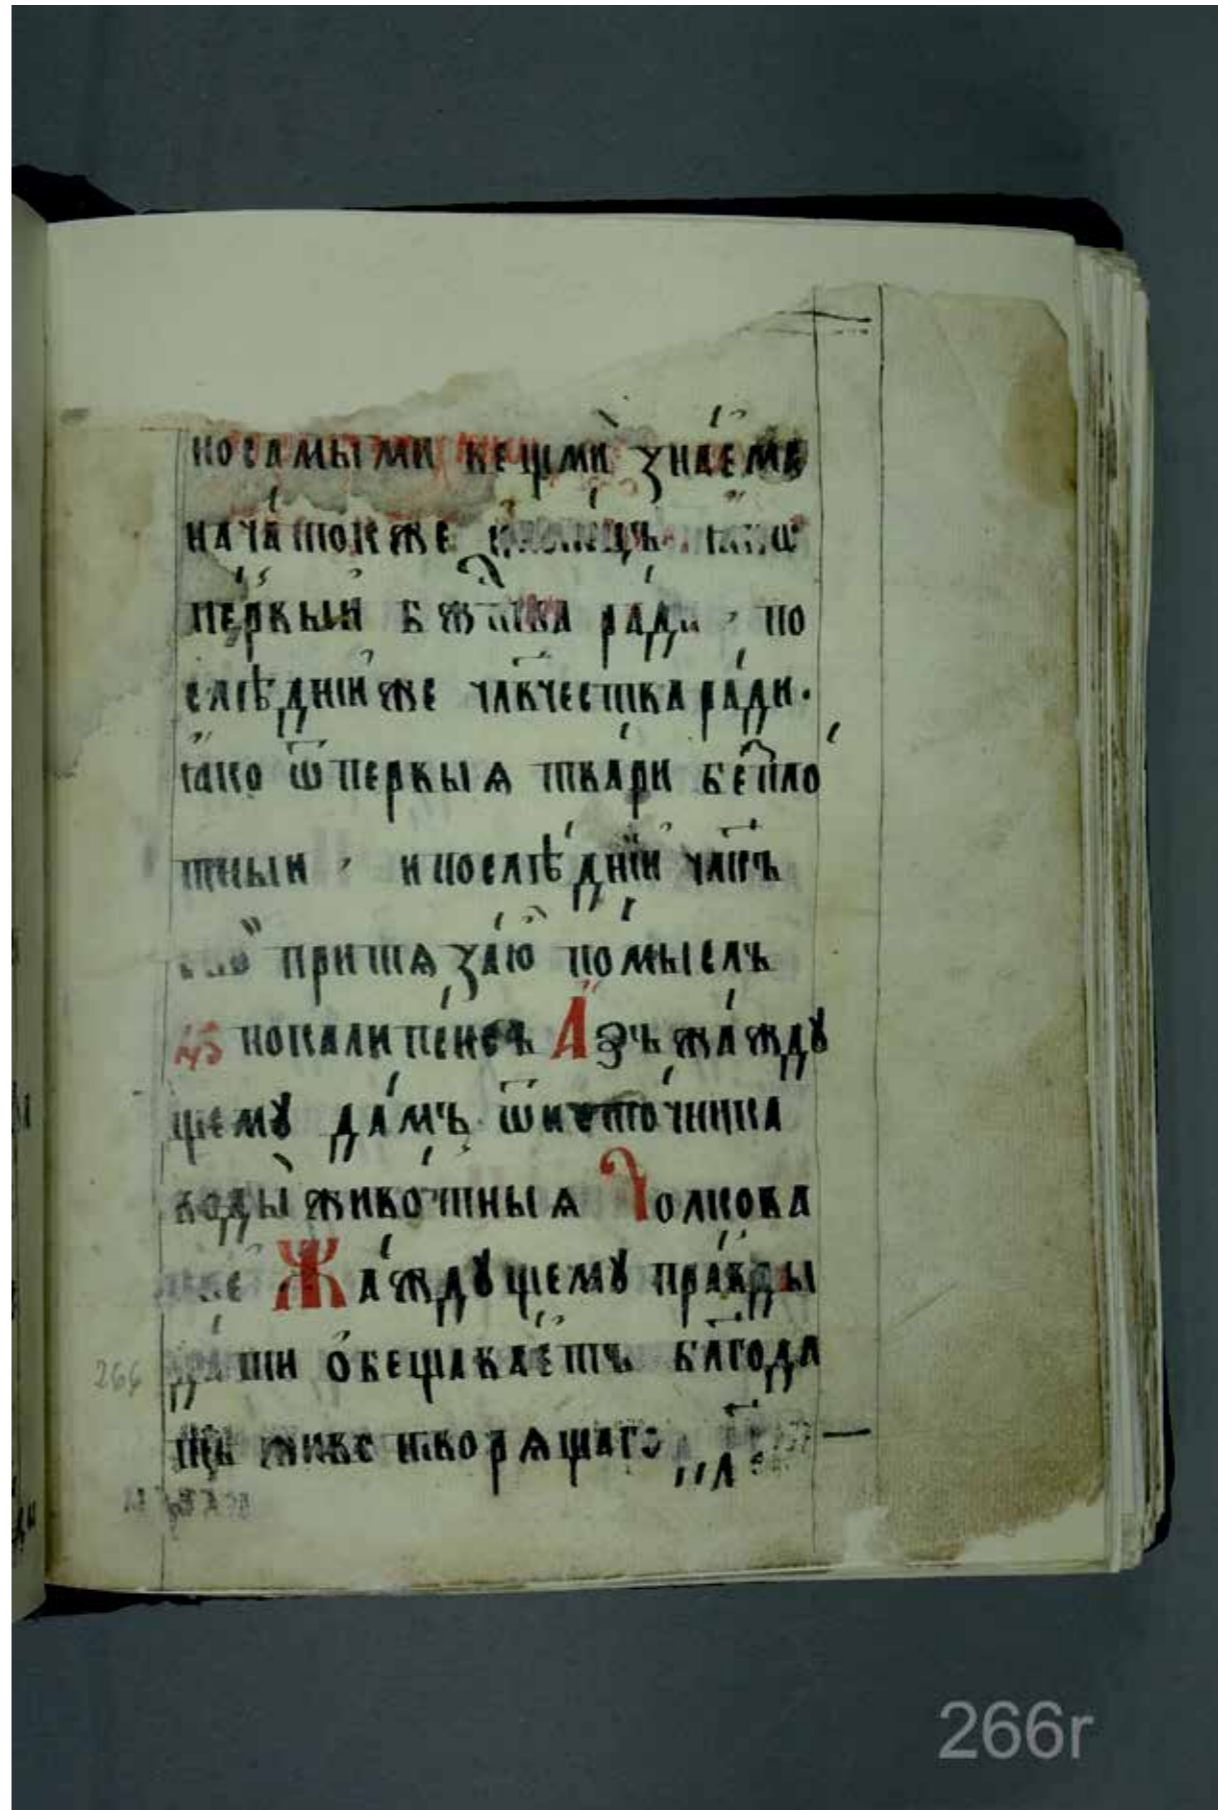 но самыми вещмѝ зна́ема
нача́токъже и҆ коне́цъ
пе́рвыи бж҃тва ра́ди, по
слѣ́днїиже чл҃вчества ра́ди.
ꙗ҆ко ѿ пе́рвыѧ тва́ри беⷥпло́
тныи, и послѣ́днїи чл҃къ
притѧза́ю по́мыслъ
покалипсисъ А҆́зъ жа́ждꙋ
щемꙋ да́мъ ѿ исто́чника
воды̀ живо́тныѧ То́лкова
Жа́ждꙋщемꙋ пра́вды
да́ти ѻбещава́етъ бл҃года
творѧщаго
266
266r